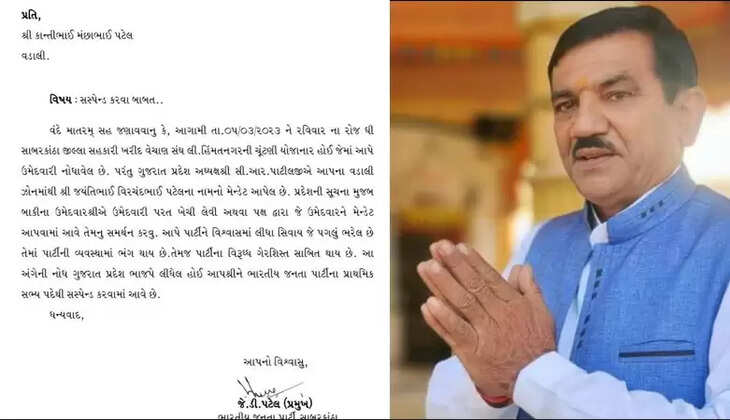 પ્રતિ,
શ્રી કાન્તીભાઈ મંછાભાઈ પટેલ
વડાલી.
વિષય : સસ્પેન્ડ કરવા બાબત..
વંદે માતરમ્ સહ જણાવવાનુ કે, આગામી તા.૦૫/૦૩/૨૦૨૩ ને રવિવાર ના રોજ ધી
સાબરકાંઠા જીલ્લા સહકારી ખરીદ વેચાણ સંઘ લી.હિંમતનગરની ચૂંટણી યોજાનાર હોઈ જેમાં આપે
ઉમેદવારી નોધાવેલ છે. પરંતુ ગુજરાત પ્રદેશ અધ્યક્ષશ્રી સી.આર.પાટીલજીએ આપના વડાલી
ઝોનમાંથી શ્રી જયંતિભાઈ વિરચંદભાઈ પટેલના નામનો મેન્ડેટ આપેલ છે. પ્રદેશની સૂચના મુજબ
બાકીના ઉમેદવારશ્રીએ ઉમેદવારી પરત ખેચી લેવી અથવા પક્ષ દ્વારા જે ઉમેદવારને મેન્ડેટ
આપવામાં આવે તેમનુ સમર્થન કરવુ. આપે પાર્ટીને વિશ્વાસમાં લીધા સિવાય જે પગલું ભરેલ છે
તેમાં પાર્ટીની વ્યવસ્થામાં ભંગ થાય છે.તેમજ પાર્ટીના વિરૂધ્ધ ગેરશિસ્ત સાબિત થાય છે. આ
અંગેની નોધ ગુજરાત પ્રદેશ ભાજપે લીધેલ હોઈ આપશ્રીને ભારતીય જનતા પાર્ટીના પ્રાથમિક
સભ્ય પદેથી સસ્પેન્ડ કરવામાં આવે છે.
ધન્યવાદ,
આપનો વિશ્વાસુ,
જે.ડી.પટેલ (પ્રમુખ)
ભારતીય જનતા પાર્ટી સાબરકાંઠા